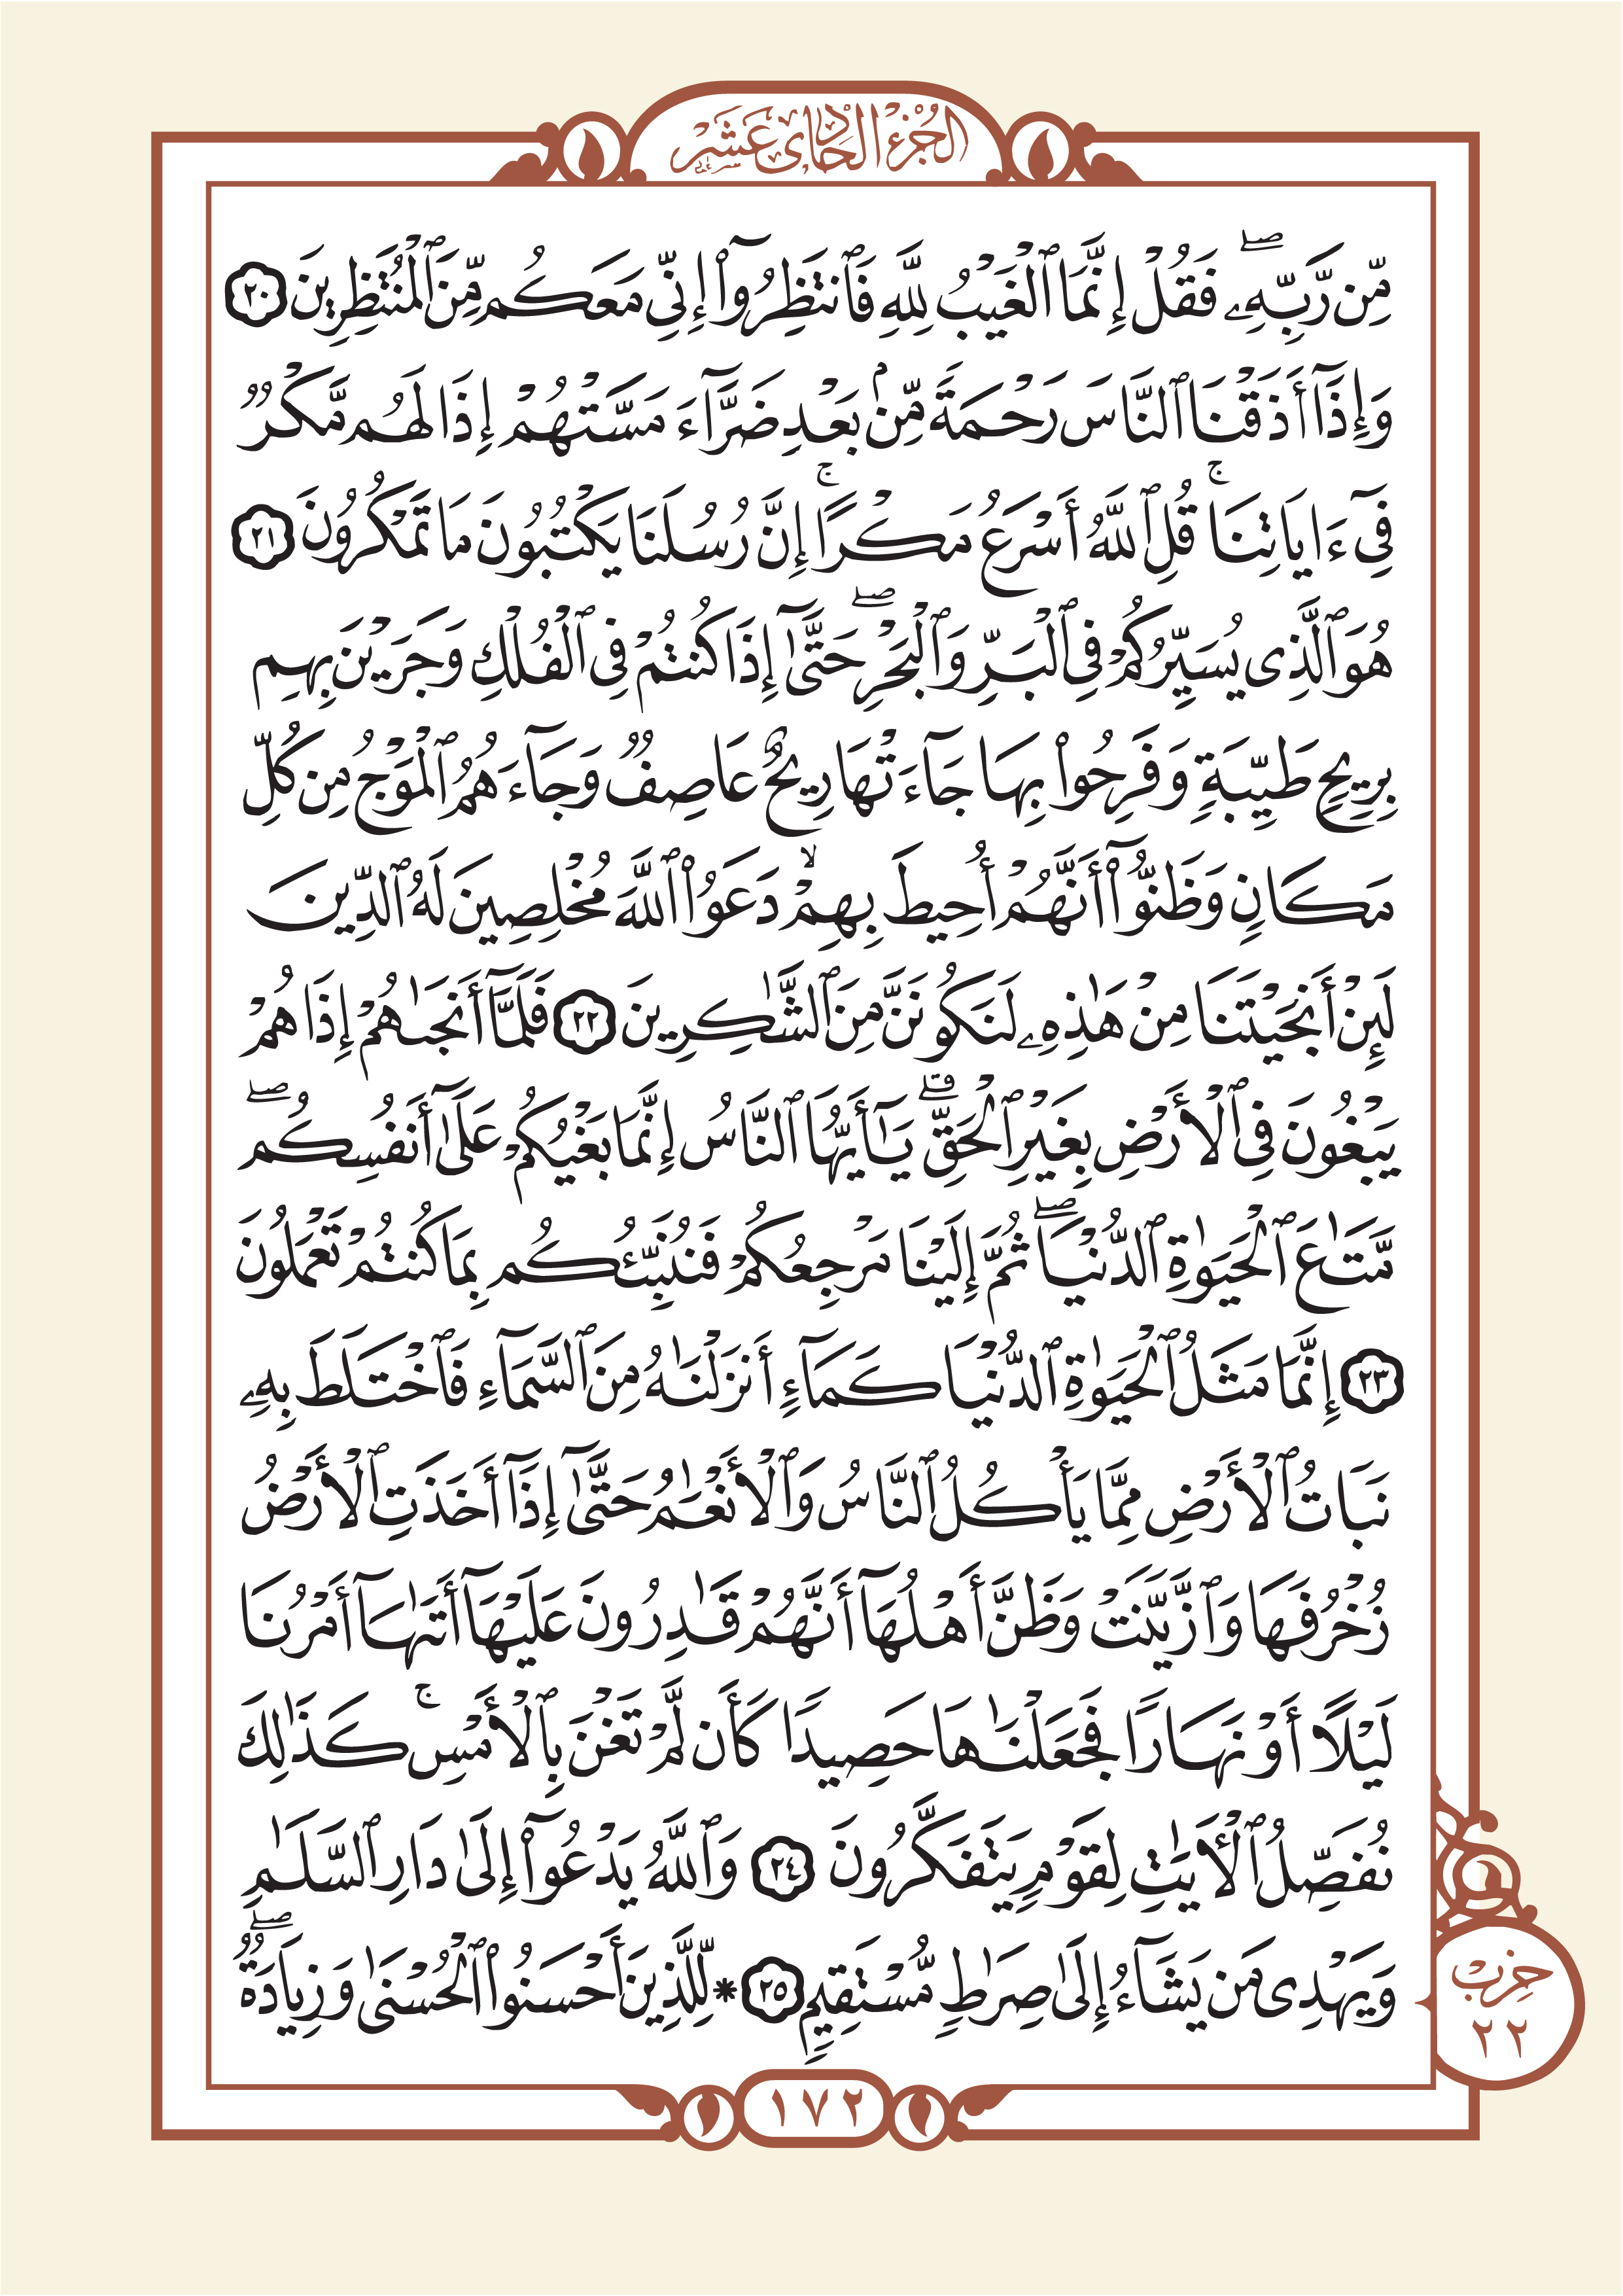 الجزء الحادى عشر
مِّن رَّبِّهِۦۖ فَقُلْ إِنَّمَا ٱلْغَيْبُ لِلَّهِ فَٱنتَظِرُوٓا۟ إِنِّى مَعَكُم مِّنَ ٱلْمُنتَظِرِينَ ٢٠
وَإِذَآ أَذَقْنَا ٱلنَّاسَ رَحْمَةً مِّنۢ بَعْدِ ضَرَّآءَ مَسَّتْهُمْ إِذَا لَهُم مَّكْرٌ
فِىٓ ءَايَاتِنَاۚ قُلِ ٱللَّهُ أَسْرَعُ مَكْرًاۚ إِنَّ رُسُلَنَا يَكْتُبُونَ مَا تَمْكُرُونَ ٢١
هُوَ ٱلَّذِى يُسَيِّرُكُمْ فِى ٱلْبَرِّ وَٱلْبَحْرِۖ حَتَّىٰٓ إِذَا كُنتُمْ فِى ٱلْفُلْكِ وَجَرَيْنَ بِهِم
بِرِيحٍ طَيِّبَةٍ وَفَرِحُوا۟ بِهَا جَآءَتْهَا رِيحٌ عَاصِفٌ وَجَآءَهُمُ ٱلْمَوْجُ مِن كُلِّ
مَكَانٍ وَظَنُّوٓا۟ أَنَّهُمْ أُحِيطَ بِهِمْۙ دَعَوُا۟ ٱللَّهَ مُخْلِصِينَ لَهُ ٱلدِّينَ
لَئِنْ أَنجَيْتَنَا مِنْ هَٰذِهِۦ لَنَكُونَنَّ مِنَ ٱلشَّٰكِرِينَ ٢٢ فَلَمَّآ أَنجَىٰهُمْ إِذَا هُمْ
يَبْغُونَ فِى ٱلْأَرْضِ بِغَيْرِ ٱلْحَقِّۗ يَٰٓأَيُّهَا ٱلنَّاسُ إِنَّمَا بَغْيُكُمْ عَلَىٰٓ أَنفُسِكُمۖ
مَّتَٰعَ ٱلْحَيَوٰةِ ٱلدُّنْيَاۖ ثُمَّ إِلَيْنَا مَرْجِعُكُمْ فَنُنَبِّئُكُم بِمَا كُنتُمْ تَعْمَلُونَ
٢٣ إِنَّمَا مَثَلُ ٱلْحَيَوٰةِ ٱلدُّنْيَا كَمَآءٍ أَنزَلْنَٰهُ مِنَ ٱلسَّمَآءِ فَٱخْتَلَطَ بِهِۦ
نَبَاتُ ٱلْأَرْضِ مِمَّا يَأْكُلُ ٱلنَّاسُ وَٱلْأَنْعَٰمُ حَتَّىٰٓ إِذَآ أَخَذَتِ ٱلْأَرْضُ
زُخْرُفَهَا وَٱزَّيَّنَتْ وَظَنَّ أَهْلُهَآ أَنَّهُمْ قَٰدِرُونَ عَلَيْهَآ أَتَىٰهَآ أَمْرُنَا
لَيْلًا أَوْ نَهَارًا فَجَعَلْنَٰهَا حَصِيدًا كَأَن لَّمْ تَغْنَ بِٱلْأَمْسِۚ كَذَٰلِكَ
نُفَصِّلُ ٱلْءَايَٰتِ لِقَوْمٍ يَتَفَكَّرُونَ ٢٤ وَٱللَّهُ يَدْعُوٓا۟ إِلَىٰ دَارِ ٱلسَّلَٰمِ
وَيَهْدِى مَن يَشَآءُ إِلَىٰ صِرَٰطٍ مُّسْتَقِيمٍ ٢٥ * لِّلَّذِينَ أَحْسَنُوا۟ ٱلْحُسْنَىٰ وَزِيَادَةٌۖ
حزب
٢٢
١٧٢